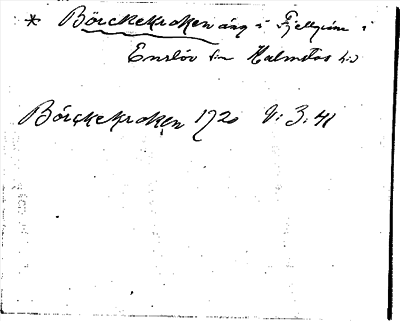 * Börckekroken äng i Fjellgim i
Enslöv sn Halmstad hd
Börckekroken 1720 V: 3: 41